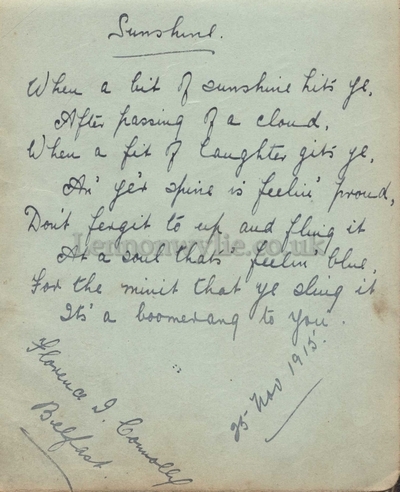 Sunshine.
When a bit of sunshine hits ye,
After passing of a cloud,
When a fit of laughter gits ye,
An' ye'r spine is feelin' proud,
Don't fergit to up and fling it
At a soul thats' feelin' blue,
For the minit that ye slug it
Its' a boomerang to you.
Lennonwylie.co.uk
Florence I. Connolly
Belfast.
25 Nov 1915.